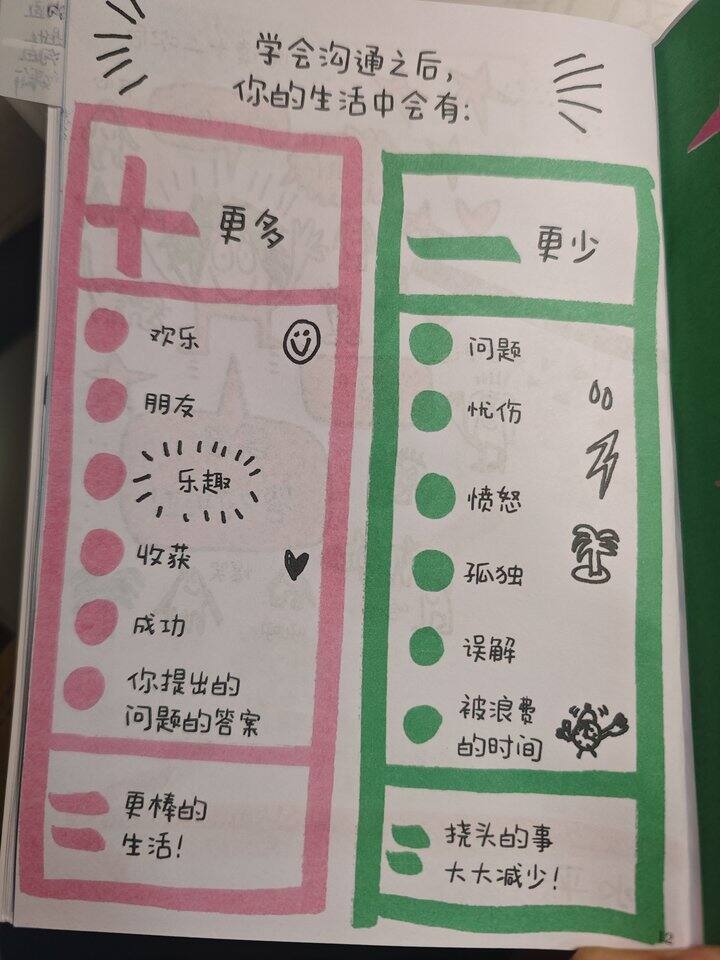 学会沟通之后,
你的生活中会有:
更多
欢乐
朋友
乐趣
收获
成功
你提出的
问题的答案
更棒的
生活!
更少
问题
忧伤
愤怒
孤独
误解
被浪费
的时间
挠头的事
大大减少!